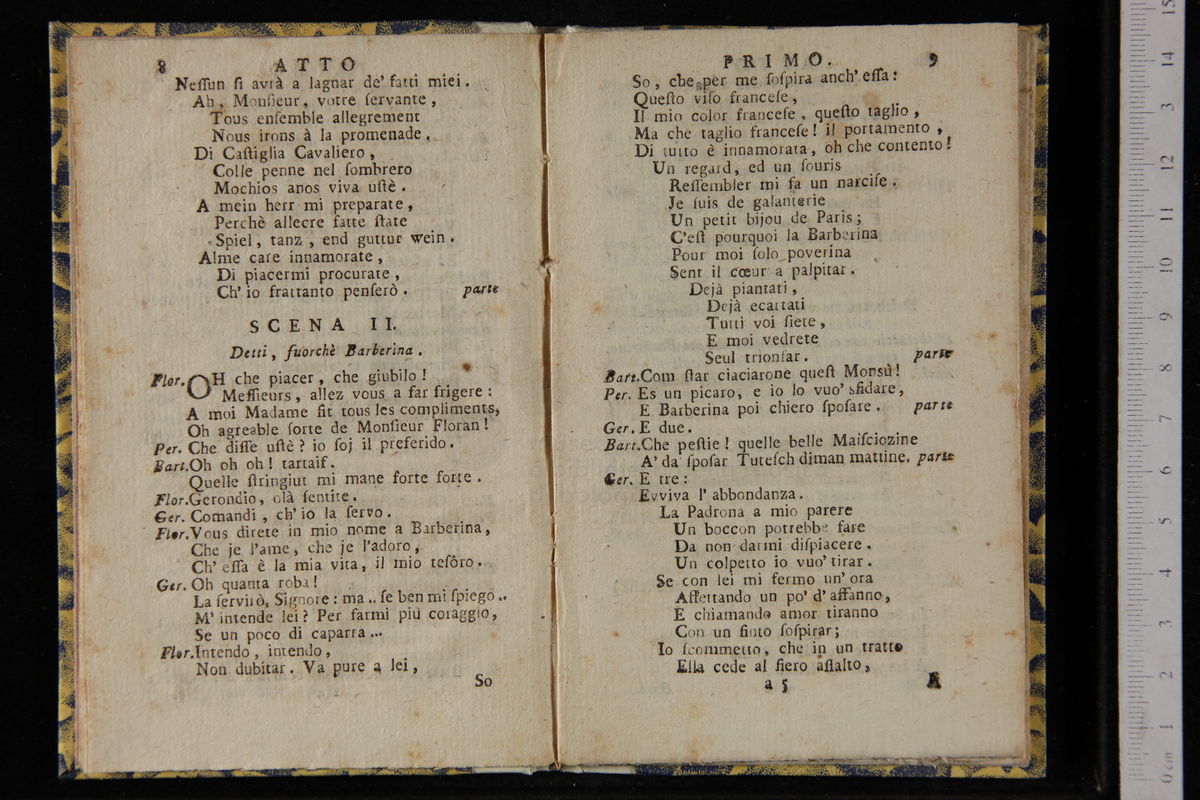 8 ATTO
Neſſun ſi avrà a lagnar de' fatti miei.
Ah, Monſieur, votre ſervante,
Tous enſemble allegrement
Nous irons à la promenade.
Di Caſtiglia Cavaliero,
Colle penne nel ſombrero
Mochios anos viva uſtè.
A mein herr mi preparate,
Perchè allecre fatte ſtate
Spiel, tanz, end guttur wein.
Alme care innamorate,
Di piacermi procurate,
Ch' io frattanto penſerò. parte
SCENA II.
Detti, fuorchè Barberina.
Flor. OH che piacer, che giubilo!
Meſſieurs, allez vous a far frigere:
A moi Madame fit tous les compliments,
Oh agreable ſorte de Monſieur Floran!
Per. Che diſſe uſtè? io ſoj il preferido.
Bart. Oh oh oh! tartaif.
Quelle ſtringiut mi mane forte forte.
Flor. Gerondio, olà ſentite.
Ger. Comandi, ch' io la ſervo.
Flor. Vous direte in mio nome a Barberina,
Che je l'ame, che je l'adoro,
Ch' eſſa è la mia vita, il mio teſôro.
Ger. Oh quanta roba!
La ſervirò, Signore: ma.. ſe ben mi ſpiego..
M' intende lei? Per farmi più coraggio,
Se un poco di caparra...
Flor. Intendo, intendo,
Non dubitar. Va pure a lei,
So
PRIMO. 9
So, che per me ſoſpira anch' eſſa:
Queſto viſo franceſe,
Il mio color franceſe, queſto taglio,
Ma che taglio franceſe! il portamento,
Di tutto è innamorata, oh che contento!
Un regard, ed un ſouris
Reſſembler mi fa un narciſe.
Je ſuis de galanterie
Un petit bijou de Paris;
C'eſt pourquoi la Barberina
Pour moi ſolo poverina
Sent il cœur a palpitar.
Dejà piantati,
Dejà ecartati
Tutti voi ſiete,
E moi vedrete
Seul trionfar. parte
Bart. Com ſtar ciaciarone queſt Monsù!
Per. Es un picaro, e io lo vuo' sfidare,
E Barberina poi chiero ſpoſare. parte
Ger. E due.
Bart. Che peſtie! quelle belle Maiſciozine
A' da' ſpoſar Tuteſch diman mattine. parte
Ger. E tre:
Evviva l' abbondanza.
La Padrona a mio parere
Un boccon potrebbe fare
Da non darmi diſpiacere.
Un colpetto io vuo' tirar.
Se con lei mi fermo un' ora
Affettando un po' d' affanno,
E chiamando amor tiranno
Con un finto ſoſpirar;
Io ſcommetto, che in un tratto
Ella cede al fiero aſſalto,
a 5 A